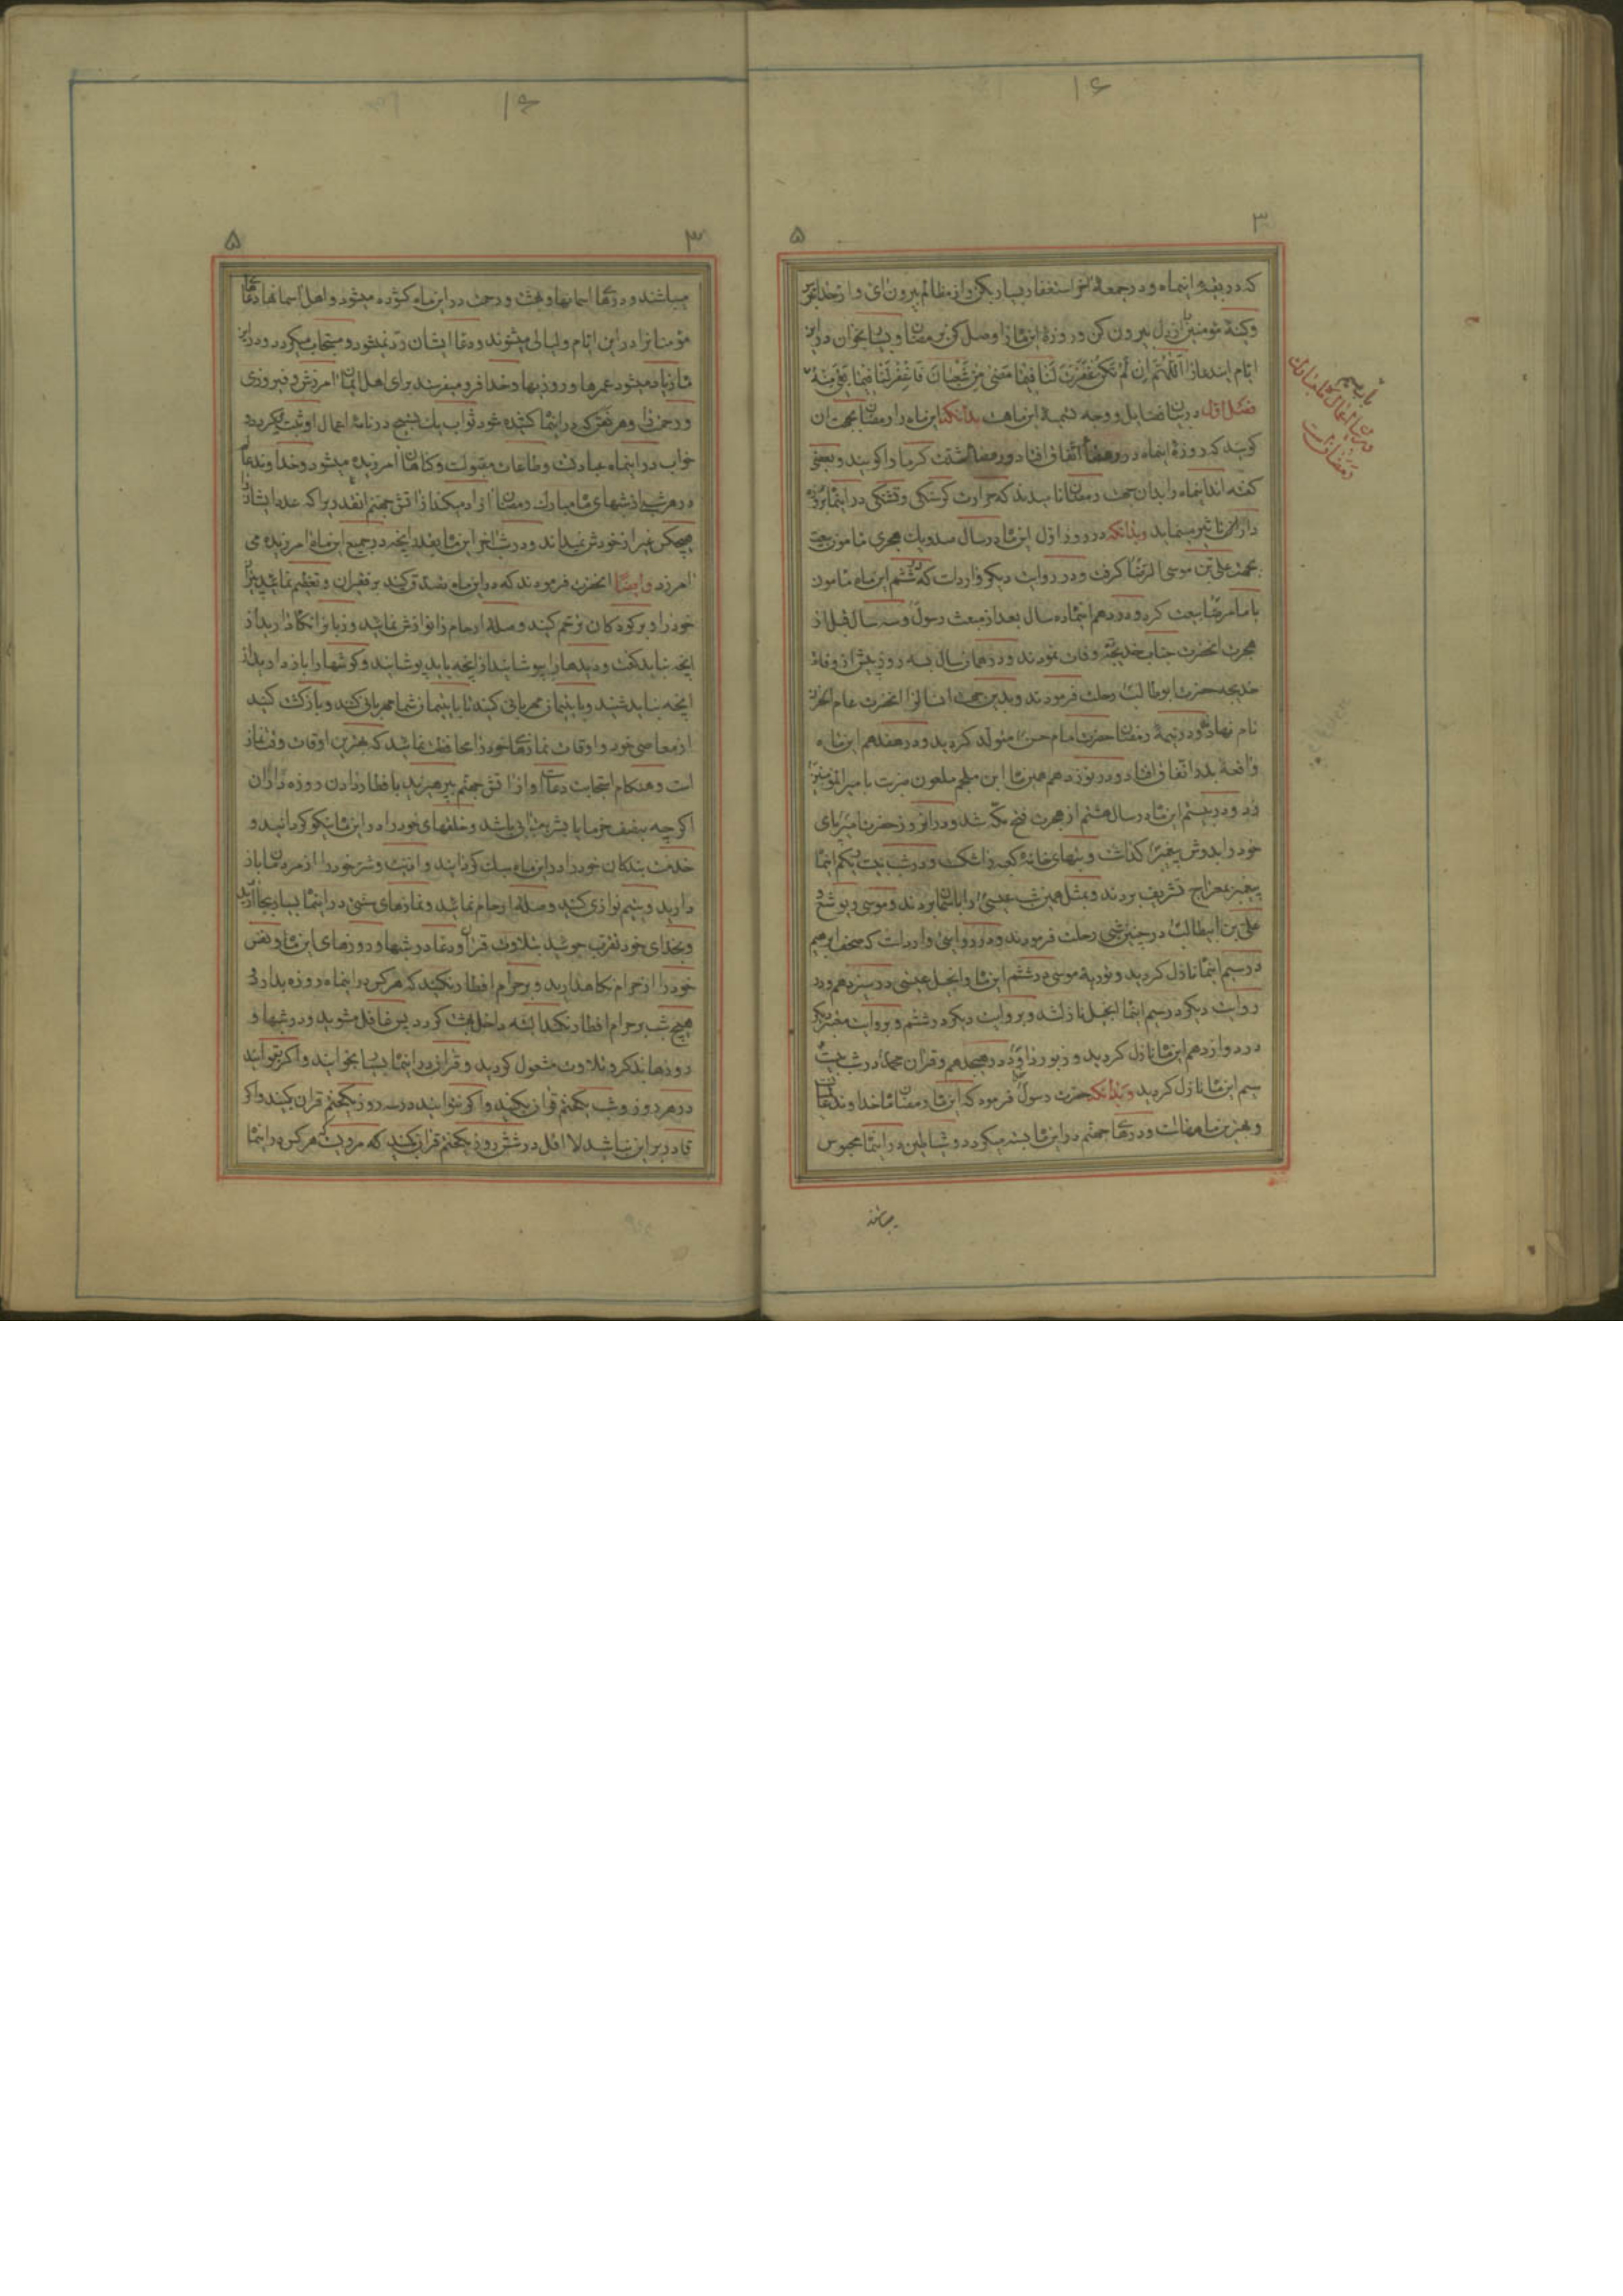 ۱۶
۳
۵
که در بقیهٔ اینماه و در جمعهٔ آخر استغفار بسیار بکن و از مظالم بیرون ای و از خدا بترس
وکینهٔ مؤمنین از دل بیرون کن و روزهٔ این ماه را وصل کن برمضان و بسیار بخوان در این
ایام این دعا را اللّهُمَّ اِن لَم تَکُن غَفَرتَ لَنا فیما مَضی مِن شَعبانَ فَاغفِر لَنا فیما بَقِیَ مِنهُ
فصل اول در بیان فضایل و وجه تسمیهٔ این ماهست بدانکه این ماه را رمضان بجهت ان
کویند که روزهٔ اینماه در رمضا اتفاق افتاد و رمضا شدت کرما را کویند و بعضی
کفته اند اینماه را بدان جهت رمضان نامیدند که حرارت کرسنکی و تشنکی در اینماه بروزه
داران تاثیر مینماید و بدانکه در روز اول این ماه در سال صد و یک هجری مامون بیعت
بجهت علی بن موسی الرضا کرفت و در روایت دیکر وارد است که در ششم این ماه مامون
با امام رضا بیعت کرد و در دهم اینماه ده سال بعد از مبعث رسول و سه سال قبل از
هجرت انحضرت جناب خدیجه وفات نمودند و در همان سال بسه روز پیش از وفات
خدیجه حضرت ابوطالب رحلت فرمودند و بدین جهت انسال را انحضرت عام الحزن
نام نهاد و در نیمهٔ رمضان حضرت امام حسن متولد کردید و در هفدهم این ماه
واقعهٔ بدر اتفاق افتاد و در نوزدهم همین ماه ابن ملجم ملعون ضربت با میرالمؤمنین
زد و در بیستم این ماه در سال هشتم از هجرت فتح مکه شد و در انروز حضرت امیر پای
خود را بدوش پیغمبر کذاشت و بتهای خانهٔ کعبه را شکست و در شب بیست و یکم اینماه
پیغمبر بمعراج تشریف بردند و بمثل همین شب عیسی را باسمان بردند و موسی و یوشع و
علی بن ابیطالب در چنین شبی رحلت فرمودند و در روایتی وارد است که صحف ابرهیم
در سیم اینماه نازل کردید و توریة موسی در ششم این ماه و انجیل عیسی در سیزدهم و در
روایت دیکر در سیم اینماه انجیل نازل شد و بروایت دیکر در ششم و بروایت معتبر دیکر
در دوازدهم این ماه نازل کردید و زبور داود در هیجدهم و قران محمد در شب بیست
سیم این ماه نازل کردید و بدانکه حضرت رسول فرموده که این ماه رمضان ماه خداوند
و بهترین ماههاست و درهای جهنم در این ماه بسته میکردد و شیاطین در اینماه محبوس
میباشند
باب سیم
در بیان اعمال ماه مبارک
رمضانست
۱۶
۳
۵
میباشند و درهای اسمانها و بهشت و رحمت در این ماه کشوده میشود و اهل اسمانها دعای
مؤمنانرا در این ایام و لیالی میشنوند و دعای ایشان رد نمیشود و مستجاب میکردد و در این
ماه زیاد میشود عمرها و روزیها و خدا فرو میفرستد برای اهل ایمان امرزش و فیروزی
و رحمت را و هر نفس که در اینماه کشیده شود ثواب یک تسبیح در نامهٔ اعمال او ثبت میکردد و
خواب در اینماه عبادت و طاعات مقبول است و کناهان امرزیده میشود و خداوند عالم
در هر شب از شبهای ماه مبارک رمضان ازاد میکند از اتش جهنم انقدر را که عدد ایشان را
هیچکس غیر از خودش نمیداند و در شب اخر این ماه بعدد انچه در جمیع این ماه امرزیده می
امرزد و ایضاً انحضرت فرمودند که در این ماه تصدق کنید بر فقیران و تعظیم نمائید پیران
خود را و بر کودکان ترحم کنید و صلهٔ ارحام را نوازش نمائید و زبانرا نکاه دارید از
انچه نباید کفت و دیدها را بپوشانید از انچه باید پوشانید و کوشها را باز دارید از
انچه نباید شنید و با یتیمان مهربانی کنید تا با یتیمان شما مهربانی کنند و بازکشت کنید
از معاصی خود و اوقات نمازهای خود را محافظت نمائید که بهترین اوقات وقت نماز
است و هنکام استجابت دعاست و از اتش جهنم بپرهیزید بافطار دادن روزه داران
اکرچه بنصف خرما یا بشربت ابی باشد و خلقهای خود را در این ماه نیکو کردانید و
خدمت بندکان خود را در این ماه سبک کردانید و اذیت و شر خود را از مردمان باز
دارید و یتیم نوازی کنید و صلهٔ ارحام نمائید و نمازهای سنتی در اینماه بسیار بجا ارید
و بخدای خود تقرب جوئید بتلاوت قران و دعا در شبها و روزهای این ماه و نفس
خود را از حرام نکاهدارید و بر حرام افطار نکنید که هرکس در اینماه روزه بدارد و
هیچ شب بر حرام افطار نکند البته داخل بهشت کردد پس غافل مشوید و در شبها و
روزها بذکر و تلاوت مشغول کردید و قران در اینماه بسیار بخوانید و اکر بتوانید
در هر روز و شب یکختم قران بکنید و اکر نتوانید در سه روز یکختم قران بکنید و اکر
قادر بر این نباشید لااقل در شش روز یکختم قران بکنید که مرویست هرکس در اینماه